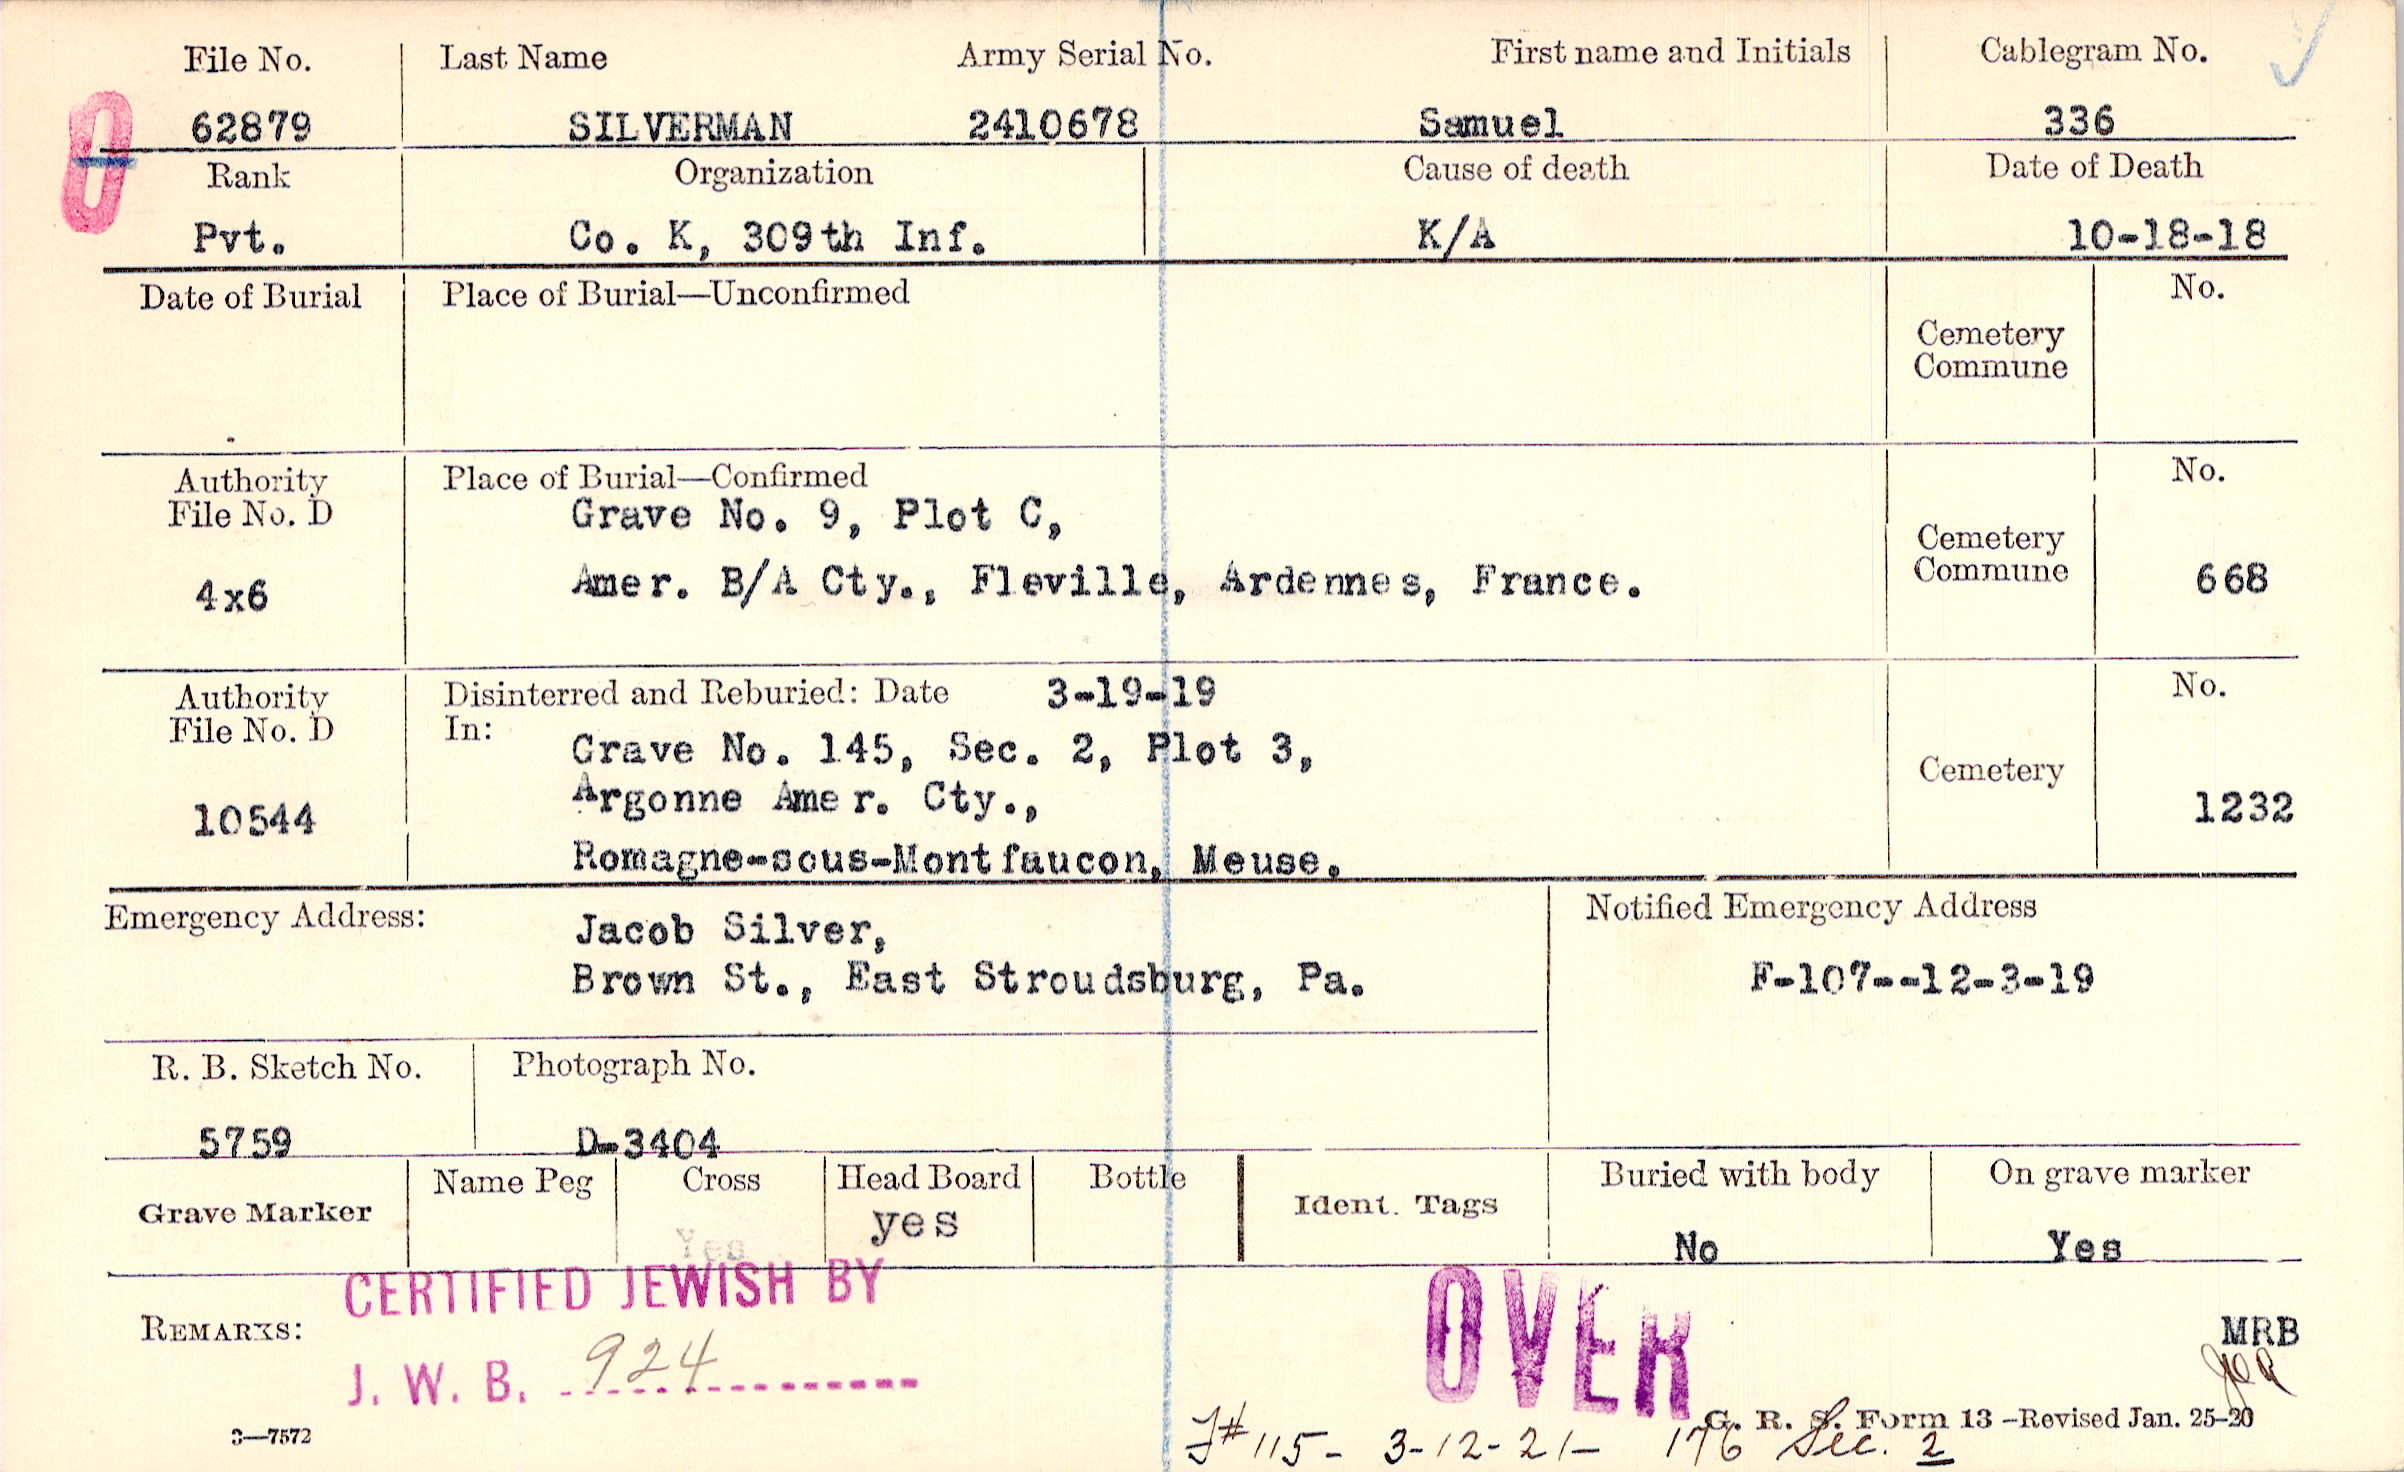 File No. Last Name Army Serial No. First name and Initials Cablegram No.
62879 SILVERMAN 2410678 Samuel 336
Rank Organization Cause of death Date of Death
Pvt. Co. K, 309th Inf. K/A 10-18-18
Date of Burial Place of Burial—Unconfirmed No.
Cemetery
Commune
Authority Place of Burial—Confirmed No.
File No. D Grave No. 9, Plot C,
Cemetery
4x6 Amer. B/A Cty., Fleville, Ardennes, France. Commune 668
Authority Disinterred and Reburied: Date 3-19-19 No.
File No. D In:
Grave No. 145, Sec. 2, Plot 3,
Cemetery
10544 Argonne Amer. Cty., 1232
Romagne-sous-Montfaucon, Meuse.
Emergency Address: Jacob Silver, Notified Emergency Address
Brown St., East Stroudsburg, Pa. F-107--12-3-19
R. B. Sketch No. Photograph No.
5759 D-3404
Name Peg Cross Head Board Bottle Buried with body On grave marker
Grave Marker yes Ident. Tags
Yes No Yes
CERTIFIED JEWISH BY OVER
REMARKS: MRB
J. W. B. 924
3—7572 G. R. S. Form 13 -Revised Jan. 25-20
#115- 3-12-21- 176 Sec. 2